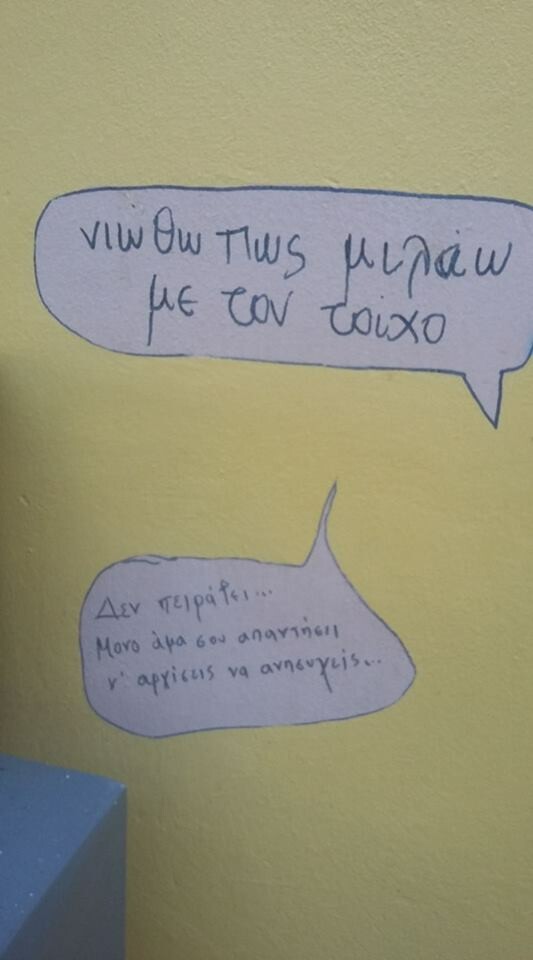 νιωθω πως μιλάω
με τον τοίχο
Δεν πειράζει...
Μονο άμα σου απαντήσει
ν' αρχίσεις να ανησυχείς...